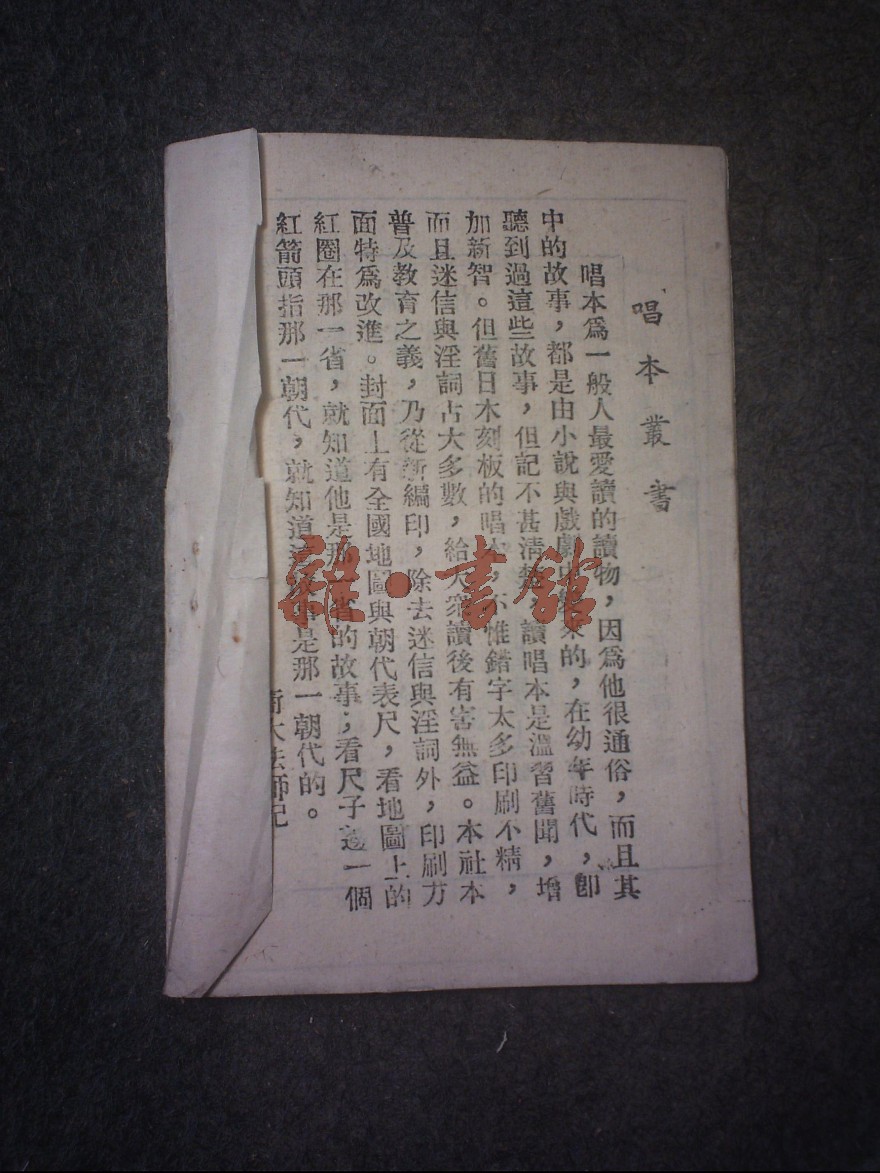 唱本叢書
唱本爲一般人最愛讀的讀物，因爲他很通俗，而且其
中的故事，都是由小說與戲劇中來的，在幼年時代，卽
聽到過這些故事，但記不甚淸楚，讀唱本是溫習舊聞，增
加新智。但舊日木刻板的唱本，不惟錯字太多印刷不精，
而且迷信與淫詞占大多數，給大衆讀後有害無益。本社本
普及教育之義，乃從新編印，除去迷信與淫詞外，印刷方
面特爲改進。封面上有全國地圖與朝代表尺，看地圖上的
紅圈在那一省，就知道他是那一省的故事；看尺子邊一個
紅箭頭指那一朝代，就知道是那一朝代的。
大法師記
雜·書館